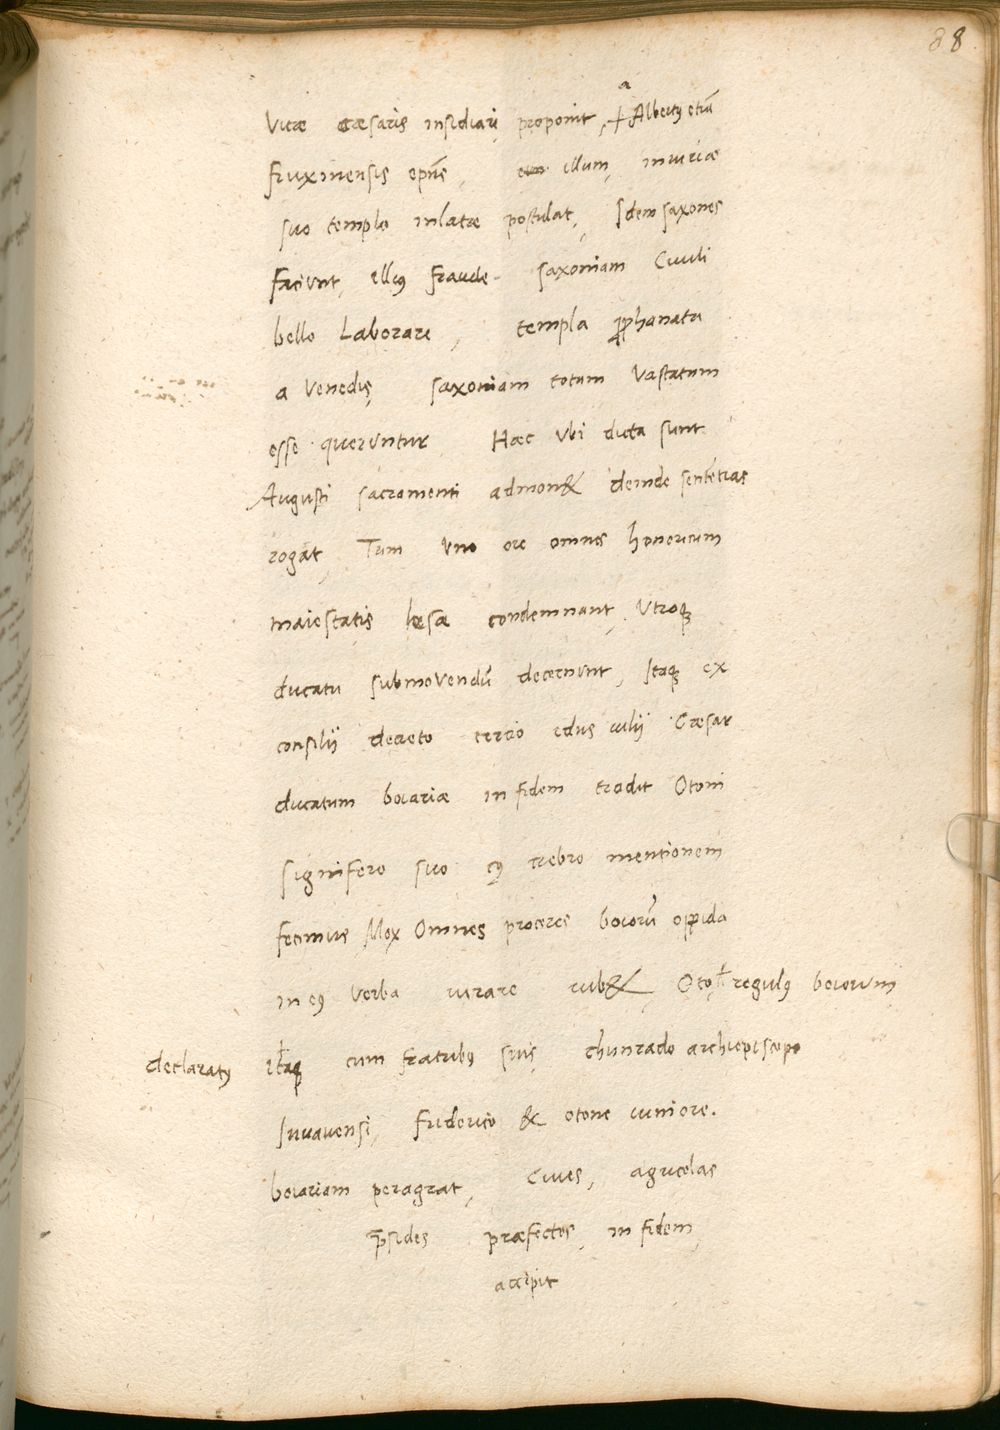 88
vitæ cæsaris insidiari proponit, + Albertꝰ etiā
fruxinensis epūs, illum iniuriæ
suo templo inlatæ postulat, Idem saxones
faciunt, illiꝰ fraude saxoniam Civili
bello Laborare, templa ꝓphanata
a Venedis, saxoniam totam vastatam
esse queruntur Haec ubi dicta sunt
Augusti sacramenti admon& deinde sentētias
rogat, Tum uno ore omnes henricum
maiestatis læsæ condemnant, Utroqꝫ
ducatu submovendū decernunt, Itaqꝫ ex
consilij decreto tercio edus iulij Cæsar
ducatum boiariæ in fidem tradit Otoni
signifero suo cꝰ crebro mentionem
fecimus Mox Omnes proceres boiorū oppida
in eꝰ verba iurare iub& Oto regulꝰ boiorum
declaratꝰ cum fratribꝰ suis chunrado archiepiscopo
Iuuauensi, friderico & otone iuniore.
boiariam peragrat, Cives, agricolas
p̄sides præfectos, in fidem
accipit